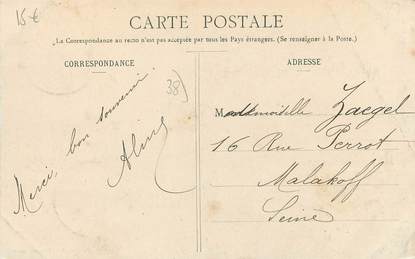 15€
CARTE POSTALE
La Correspondance au recto n'est pas acceptée par tous les Pays étrangers. (Se renseigner à la Poste.)
CORRESPONDANCE
Merci, bon souvenir.
Aline
38)
ADRESSE
Mademoiselle Zaegel
16 Rue Perrot
Malakoff
Seine